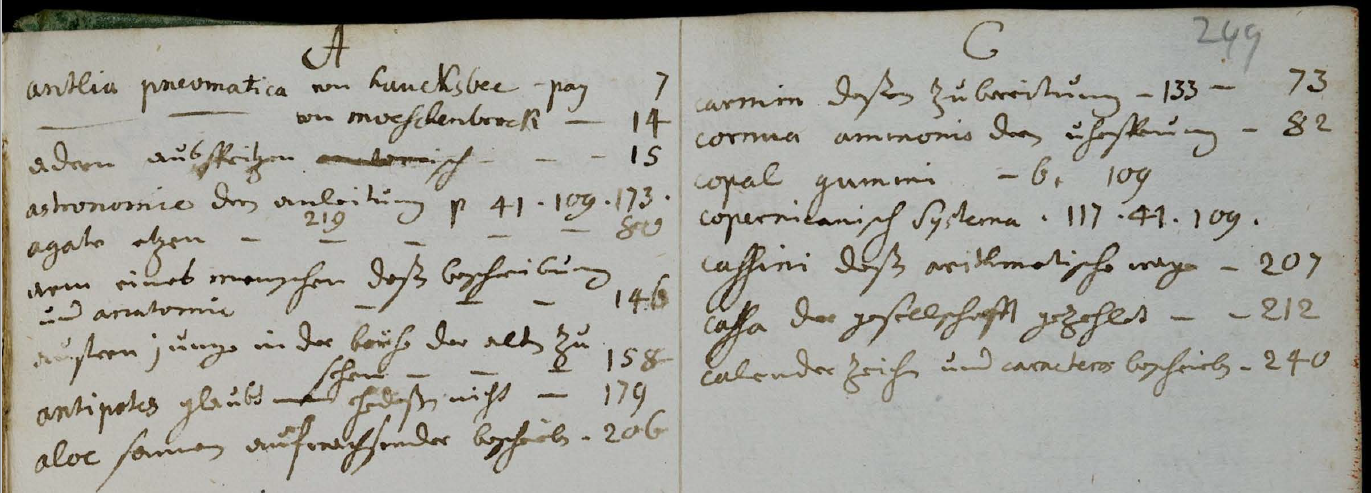 A
antlia pneomatica von haucksbee - pag 7
von moeschenbroeck — 14
adern aussspritzen anatomisch - - - 15
astronomie dern anleitung p 41 . 109 . 173 .
219
agate etzen - - - - - 89
arm eines menschen deß beschreibung
und anatomie - - - 146
austern junge in der bauche der alten zu
sehen - - - 158
antipotes glaubt man nicht — 179
aloe samen aufwachsender beschrieb - 206
249
C
carmin deßen zubereitung - 133 - 73
cornua ammonis dern uhrsprung - 82
copal gummi - 6, 109
copernicanisch Systema . 117 . 41 . 109 .
cassini deß arithmetische wage - 207
cassa der gesellschafft gezehlet - - 212
calender zeichen und caracters beschrieb - 240